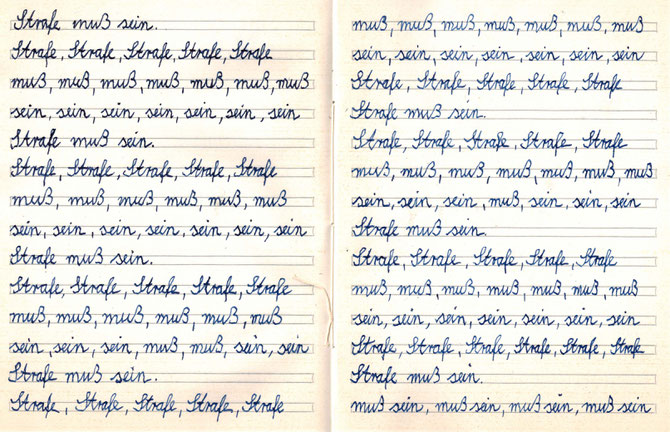 Strafe muß sein.
Strafe, Strafe, Strafe, Strafe, Strafe
muß, muß, muß, muß, muß, muß, muß
sein, sein, sein, sein, sein, sein, sein
Strafe muß sein.
Strafe, Strafe, Strafe, Strafe, Strafe
muß, muß, muß, muß, muß, muß
sein, sein, sein, sein, sein, sein, sein
Strafe muß sein.
Strafe, Strafe, Strafe, Strafe, Strafe
muß, muß, muß, muß, muß, muß
sein, sein, sein, muß, muß, sein, sein
Strafe muß sein.
Strafe, Strafe, Strafe, Strafe, Strafe
muß, muß, muß, muß, muß, muß, muß
sein, sein, sein, sein, sein, sein, sein
Strafe, Strafe, Strafe, Strafe, Strafe
Strafe muß sein.
Strafe, Strafe, Strafe, Strafe, Strafe
muß, muß, muß, muß, muß, muß, muß
sein, sein, sein, muß, sein, sein, sein
Strafe muß sein.
Strafe, Strafe, Strafe, Strafe, Strafe
muß, muß, muß, muß, muß, muß, muß
sein, sein, sein, sein, sein, sein, sein
Strafe, Strafe, Strafe, Strafe, Strafe, Strafe
Strafe muß sein.
muß sein, muß sein, muß sein, muß sein